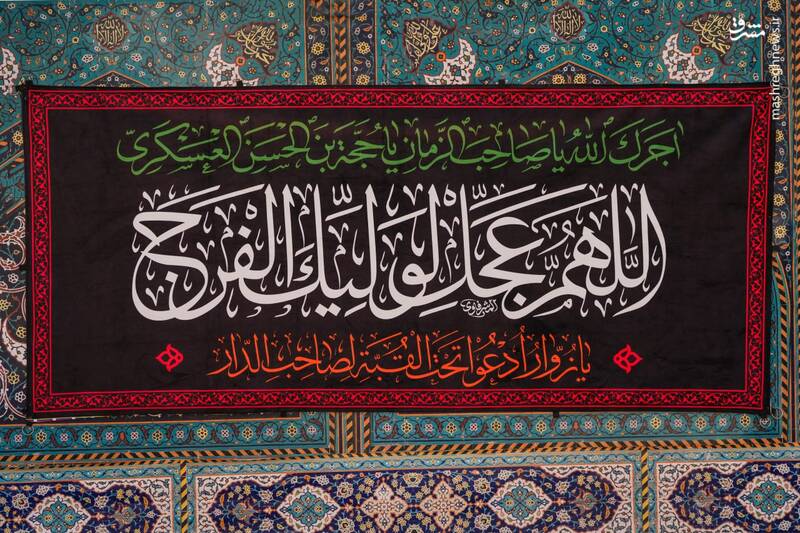 اجرك الله يا صاحب الزمان يا حجة بن الحسن العسكري
اللهم عجل لوليك الفرج
يا زوار ادعوا تحت القبة لصاحب الدار
مشرق
mashreghnews.ir